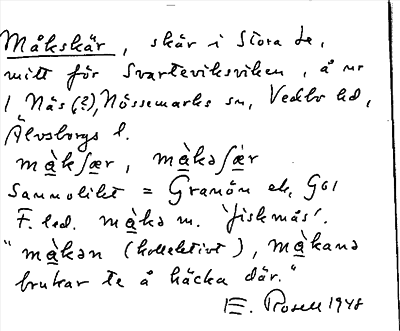 Måkskär, skär i Stora Le,
mitt för Svarteviksviken, å nr
1 Näs (?), Nössemarks sn, Vedbo hd,
Älvsborgs l.
mà̱kʃæ̱r, mà̱kəʃæ̱r
Sannolikt = Granön ek. G61
F. led. mà̱kə m. 'fiskmås'.
"mà̱kən (kollektivt), mà̱kana
brukar te å häcka där."
E. Rosell 1948